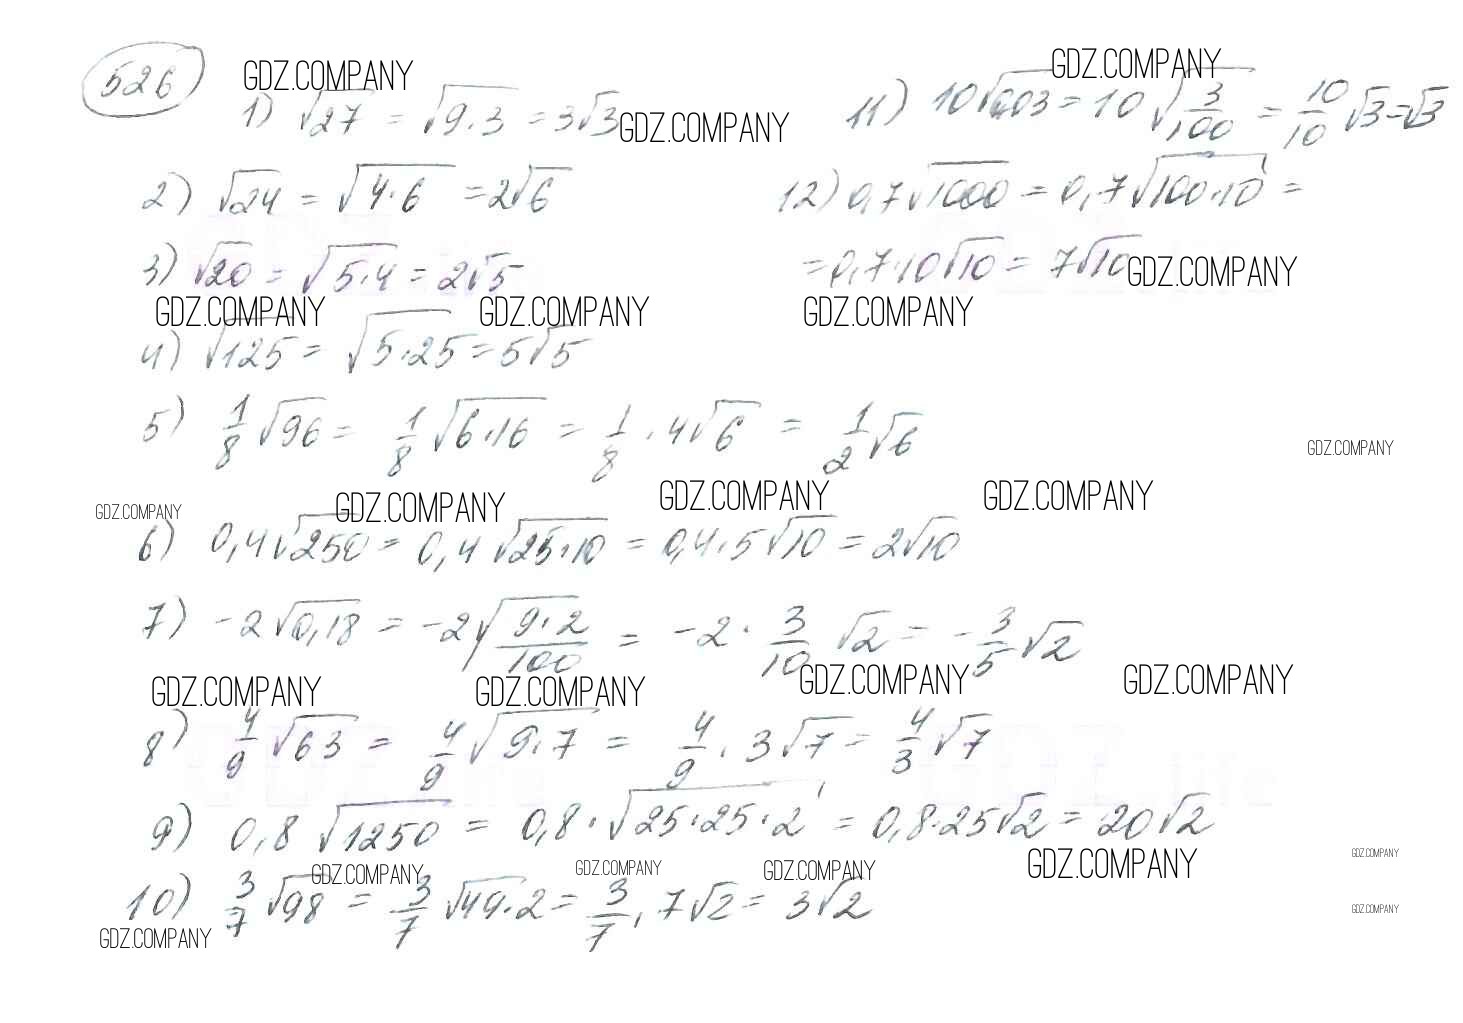 526
GDZ.COMPANY
1) √27 = √9·3 = 3√3
GDZ.COMPANY
2) √24 = √4·6 = 2√6
3) √20 = √5·4 = 2√5
GDZ.COMPANY GDZ.COMPANY
4) √125 = √5·25 = 5√5
5) 1/8 √96 = 1/8 √6·16 = 1/8 · 4√6 = 1/2 √6
GDZ.COMPANY
GDZ.COMPANY GDZ.COMPANY GDZ.COMPANY GDZ.COMPANY
6) 0,4√250 = 0,4 √25·10 = 0,4·5√10 = 2√10
7) -2√0,18 = -2√9·2/100 = -2 · 3/10 √2 = -3/5 √2
GDZ.COMPANY GDZ.COMPANY GDZ.COMPANY GDZ.COMPANY
8) 4/9 √63 = 4/9 √9·7 = 4/9 · 3√7 = 4/3 √7
GDZ.life GDZ.life
9) 0,8 √1250 = 0,8·√25·25·2 = 0,8·25√2 = 20√2
GDZ.COMPANY GDZ.COMPANY GDZ.COMPANY GDZ.COMPANY GDZ.COMPANY
10) 3/7 √98 = 3/7 √49·2 = 3/7 · 7√2 = 3√2
GDZ.COMPANY
GDZ.COMPANY
GDZ.COMPANY
11) 10√0,03 = 10 √3/100 = 10/10 √3 = √3
12) 0,7√1000 = 0,7√100·10 =
= 0,7·10√10 = 7√10
GDZ.COMPANY
GDZ.COMPANY